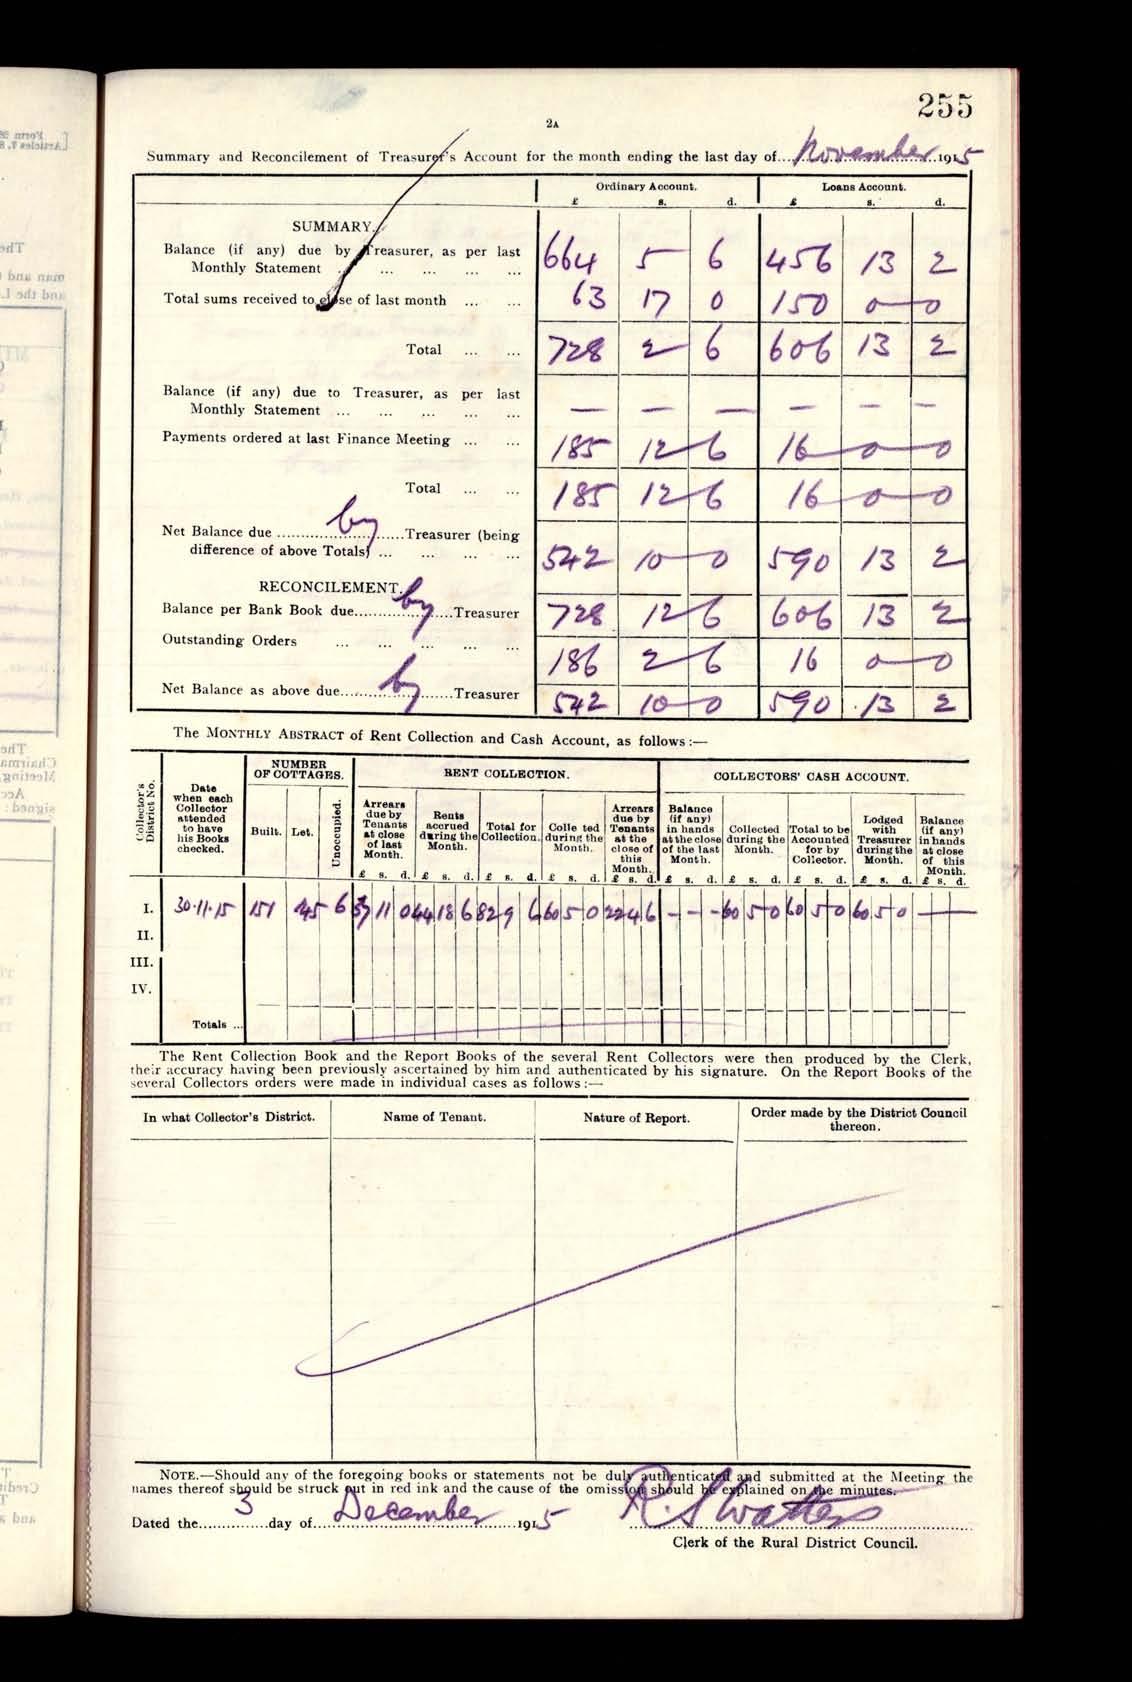 255
2A
Summary and Reconcilement of Treasurer's Account for the month ending the last day of....November....1915
Ordinary Account. Loans Account.
£ s. d. £ s. d.
SUMMARY.
Balance (if any) due by Treasurer, as per last
Monthly Statement ... ... ... ... 664 5 6 456 13 2
Total sums received to close of last month ... ... 63 17 0 150 0 0
Total ... ... 728 2 6 606 13 2
Balance (if any) due to Treasurer, as per last
Monthly Statement ... ... ... ... ... — — — — — —
Payments ordered at last Finance Meeting ... ... 185 12 6 16 0 0
Total ... ... 185 12 6 16 0 0
Net Balance due ....by....Treasurer (being
difference of above Totals) ... ... ... ... 542 10 0 590 13 2
RECONCILEMENT.
Balance per Bank Book due....by....Treasurer 728 12 6 606 13 2
Outstanding Orders ... ... ... ... ... 186 2 6 16 0 0
Net Balance as above due....by....Treasurer 542 10 0 590 13 2
The MONTHLY ABSTRACT of Rent Collection and Cash Account, as follows:—
Collector's District No.
Date when each Collector attended to have his Books checked.
NUMBER OF COTTAGES.
Built. Let. Unoccupied.
RENT COLLECTION.
Arrears due by Tenants at close of last Month.
Rents accrued during the Month.
Total for Collection.
Colle ted during the Month.
Arrears due by Tenants at the close of this Month.
COLLECTORS' CASH ACCOUNT.
Balance (if any) in hands at the close of the last Month.
Collected during the Month.
Total to be Accounted for by Collector.
Lodged with Treasurer during the Month.
Balance (if any) in hands at close of this Month.
£ s. d. £ s. d. £ s. d. £ s. d. £ s. d. £ s. d. £ s. d. £ s. d. £ s. d. £ s. d.
I. 30.11.15 151 145 6 37 11 0 44 18 6 82 9 6 60 5 0 22 4 6 - - - 60 5 0 60 5 0 60 5 0 —
II.
III.
IV.
Totals ...
The Rent Collection Book and the Report Books of the several Rent Collectors were then produced by the Clerk,
their accuracy having been previously ascertained by him and authenticated by his signature. On the Report Books of the
several Collectors orders were made in individual cases as follows:—
In what Collector's District. Name of Tenant. Nature of Report. Order made by the District Council thereon.
NOTE.—Should any of the foregoing books or statements not be duly authenticated and submitted at the Meeting the
names thereof should be struck out in red ink and the cause of the omission should be explained on the minutes.
Dated the....3....day of....December....1915 R. S. Watters
Clerk of the Rural District Council.